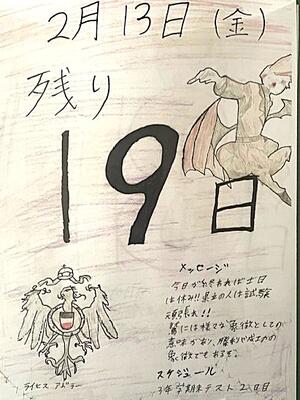 2月13日(金)
残り
19日
メッセージ
今日が終われば土日
は休み!!県立の人は試験
頑張れ!!
鷲には様々な象徴としての
意味があり、勝利や成功の
象徴でもあるぞ。
スケジュール
3年学期末テスト2日目
ライヒス アドラー